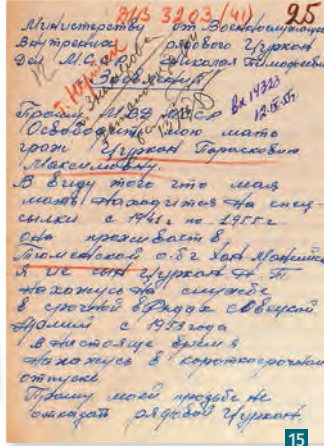 ДИВ 3203/(41) 25
Министерству от Военнослужащего
Внутрених рядового Цуркан
Дел М.С.С.Р. Николая Тимофеевич
Заевление
вх 14323
12.IV.55.
Прошу МВД МССР
Освободить мою мать
граж Цуркан Параскович
Максимовну.
В виду того что моя
мать находится на спец-
сылки с 1941 г по 1955 г
она проживает в
Тюменской о-б г Хан-Мансийск
я ие сын Цуркан Н. Т.
нахожусь на службе
в срочной в рядах Советской
Армии с 1953 года
в настояще время
нахожусь в короткосрочном
отпуске
Прошу моей прозьбе не
отказать рядовой Цуркан.
15